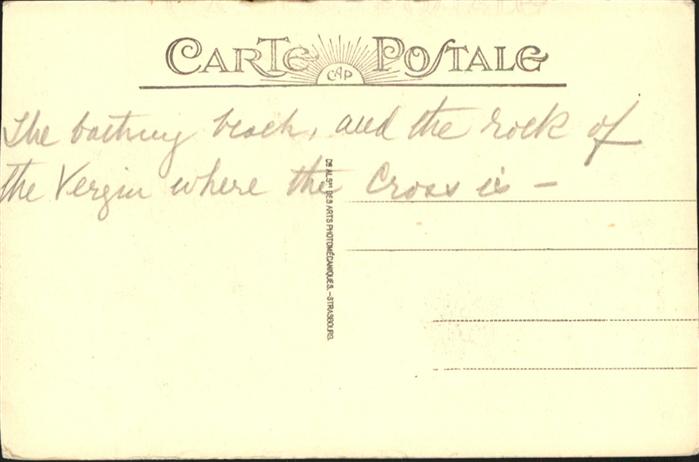 CARTE POSTALE
CAP
The bathing beach, and the rock of
the Vergin where the Cross is –
Cie ALSne DES ARTS PHOTOMÉCANIQUES. – STRASBOURG.